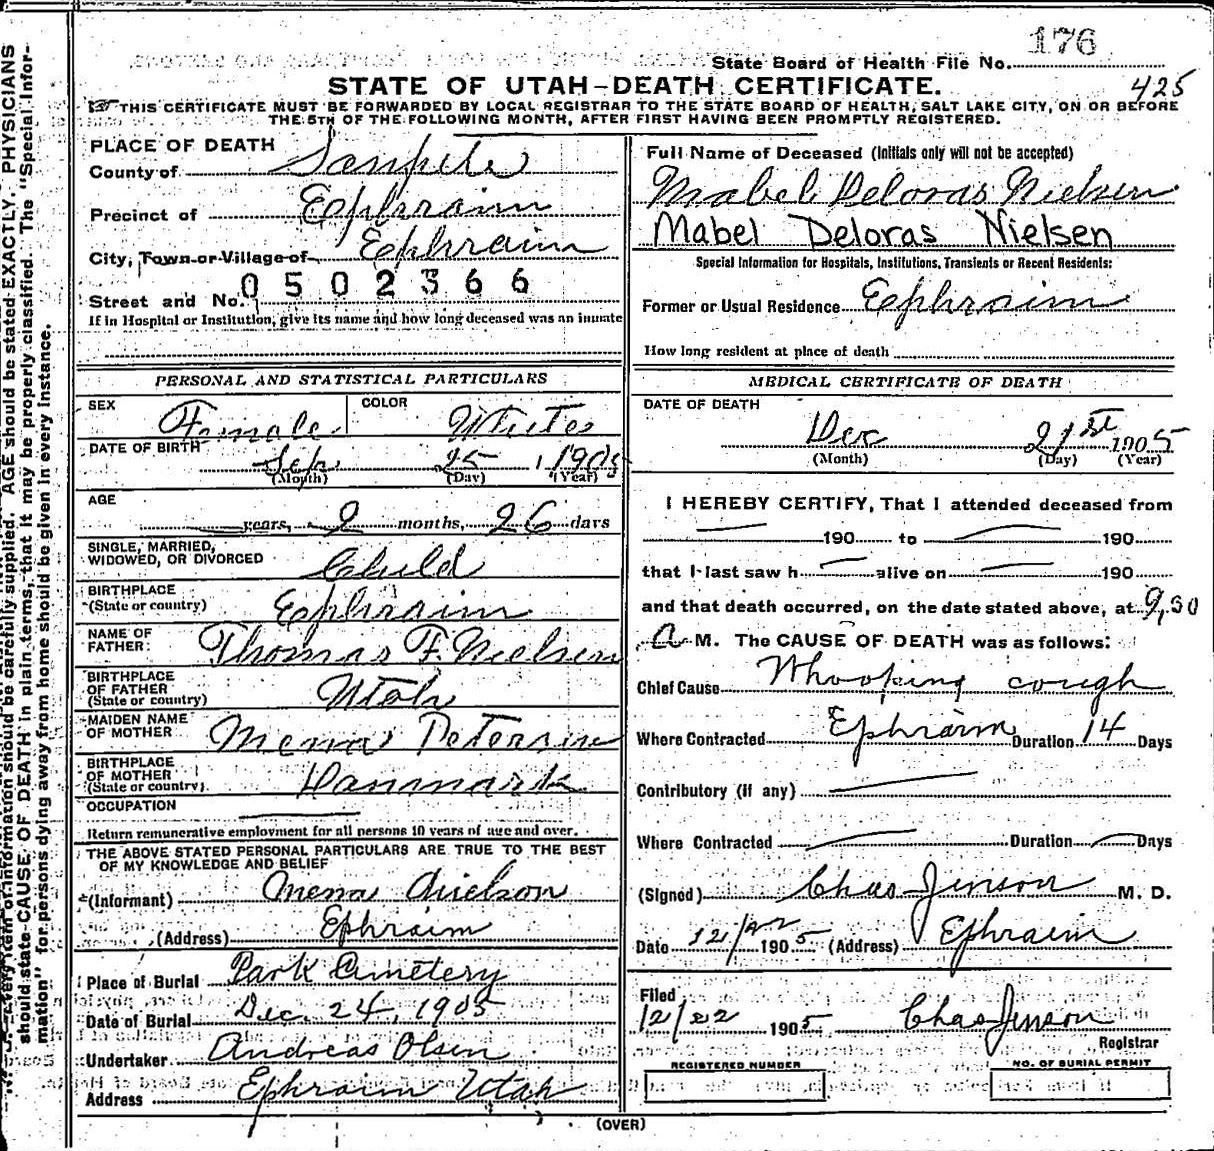 176
State Board of Health File No.
425
STATE OF UTAH—DEATH CERTIFICATE.
THIS CERTIFICATE MUST BE FORWARDED BY LOCAL REGISTRAR TO THE STATE BOARD OF HEALTH, SALT LAKE CITY, ON OR BEFORE
THE 5TH OF THE FOLLOWING MONTH, AFTER FIRST HAVING BEEN PROMPTLY REGISTERED.
PLACE OF DEATH
County of Sanpete
Precinct of Ephraim
City, Town or Village of Ephraim
0502366
Street and No.
If in Hospital or Institution, give its name and how long deceased was an inmate
Full Name of Deceased (Initials only will not be accepted)
Mabel Deloras Nielsen
Mabel Deloras Nielsen
Special Information for Hospitals, Institutions, Transients or Recent Residents:
Former or Usual Residence Ephraim
How long resident at place of death
PERSONAL AND STATISTICAL PARTICULARS
SEX Female COLOR White
DATE OF BIRTH Sep. 25, 1905
(Month) (Day) (Year)
AGE
years, 2 months, 26 days
SINGLE, MARRIED,
WIDOWED, OR DIVORCED Child
BIRTHPLACE
(State or country) Ephraim
NAME OF
FATHER: Thomas F. Nielsen
BIRTHPLACE
OF FATHER
(State or country) Utah
MAIDEN NAME
OF MOTHER Mena Petersen
BIRTHPLACE
OF MOTHER
(State or country) Danmark
OCCUPATION
Return remunerative employment for all persons 10 years of age and over.
THE ABOVE STATED PERSONAL PARTICULARS ARE TRUE TO THE BEST
OF MY KNOWLEDGE AND BELIEF
(Informant) Mena Nielson
(Address) Ephraim
Place of Burial Park Cemetery
Date of Burial Dec. 24, 1905
Undertaker Andreas Olsen
Address Ephraim Utah
MEDICAL CERTIFICATE OF DEATH
DATE OF DEATH
Dec 21st 1905
(Month) (Day) (Year)
I HEREBY CERTIFY, That I attended deceased from
190 to 190
that I last saw h alive on 190
and that death occurred, on the date stated above, at 9,30
A M. The CAUSE OF DEATH was as follows:
Chief Cause Whooping cough
Where Contracted Ephraim Duration 14 Days
Contributory (if any)
Where Contracted Duration Days
(Signed) Chas Jenson M. D.
Date 12/22 1905 (Address) Ephraim
Filed
12/22 1905 Chas Jenson
Registrar
REGISTERED NUMBER
NO. OF BURIAL PERMIT
(OVER)
Every item of information should be carefully supplied. AGE should be stated EXACTLY. PHYSICIANS
should state CAUSE OF DEATH in plain terms, that it may be properly classified. The "Special Infor-
mation" for persons dying away from home should be given in every instance.